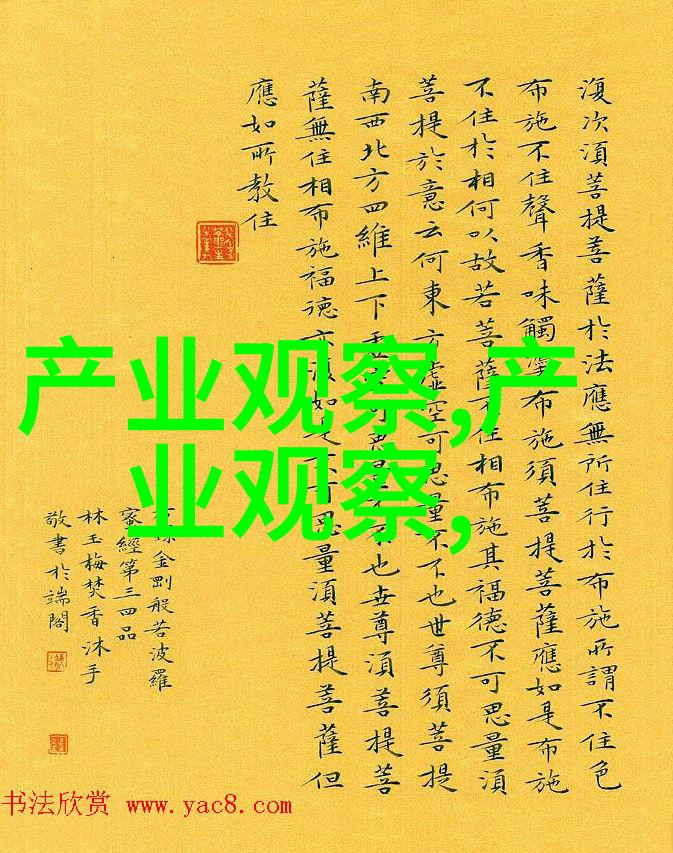 復次湏菩提菩薩於法應無所住行於布施所謂不住色
布施不住聲香味觸布施須菩提菩薩應如是布施
不住於相何以故若菩薩不住相布施其福德不可思量湏
菩提於意云何東方虛空可思量不不也世尊須菩提
南西北方四維上下可思量不也世尊湏菩提菩
薩無住相布施福德亦復如是不可思量湏菩提菩薩但
應如所教住
金剛般若波羅
蜜經第三四品
林玉梅焚香沐手
敬書於端閣
产业观察,产
业观察,
书法欣赏 www.yac8.com